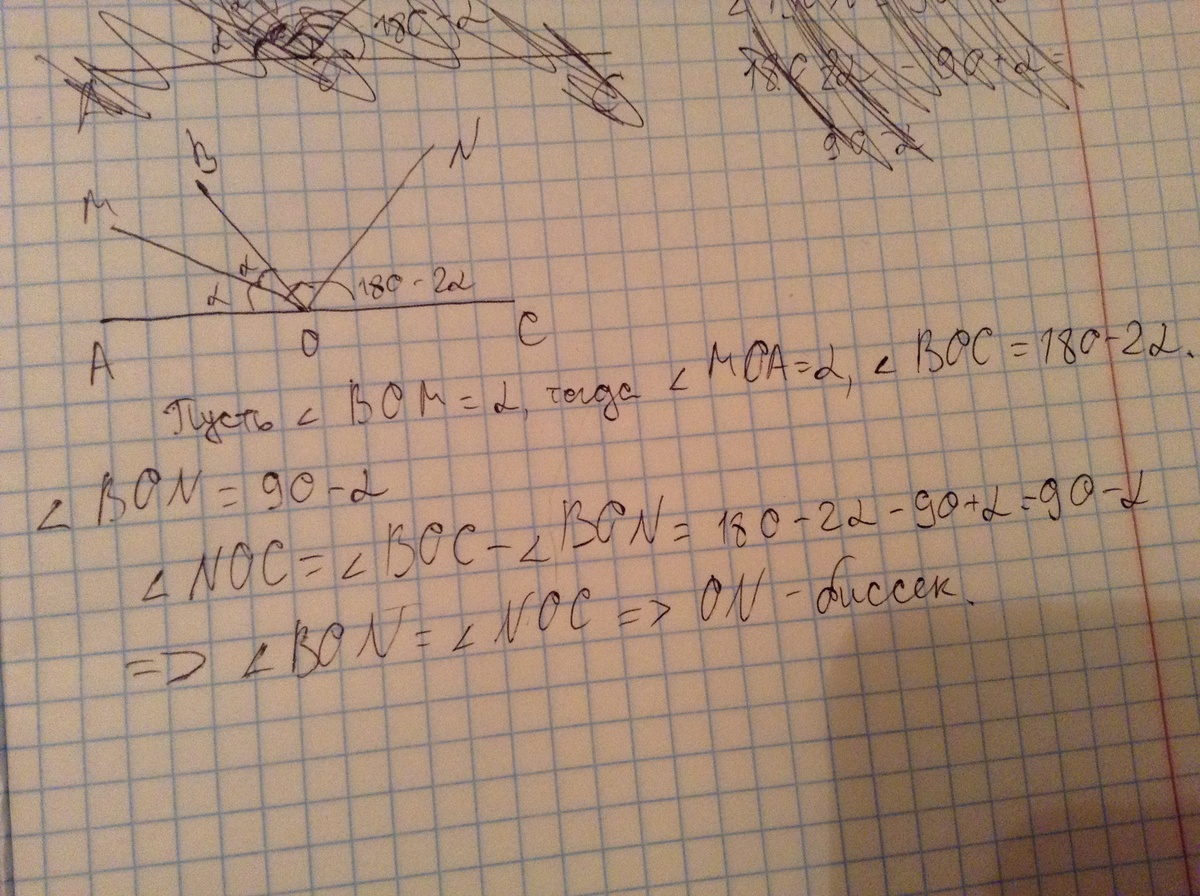 180-α
180 2α - 90+α =
90 α
B
N
M
α
α
180-2α
A
O
C
Пусть ∠ BOM = α, тогда ∠ MOA=α, ∠ BOC = 180-2α.
∠ BON = 90-α
∠ NOC = ∠ BOC - ∠ BON = 180-2α-90+α=90-α
=> ∠ BON = ∠ NOC => ON - биссек.